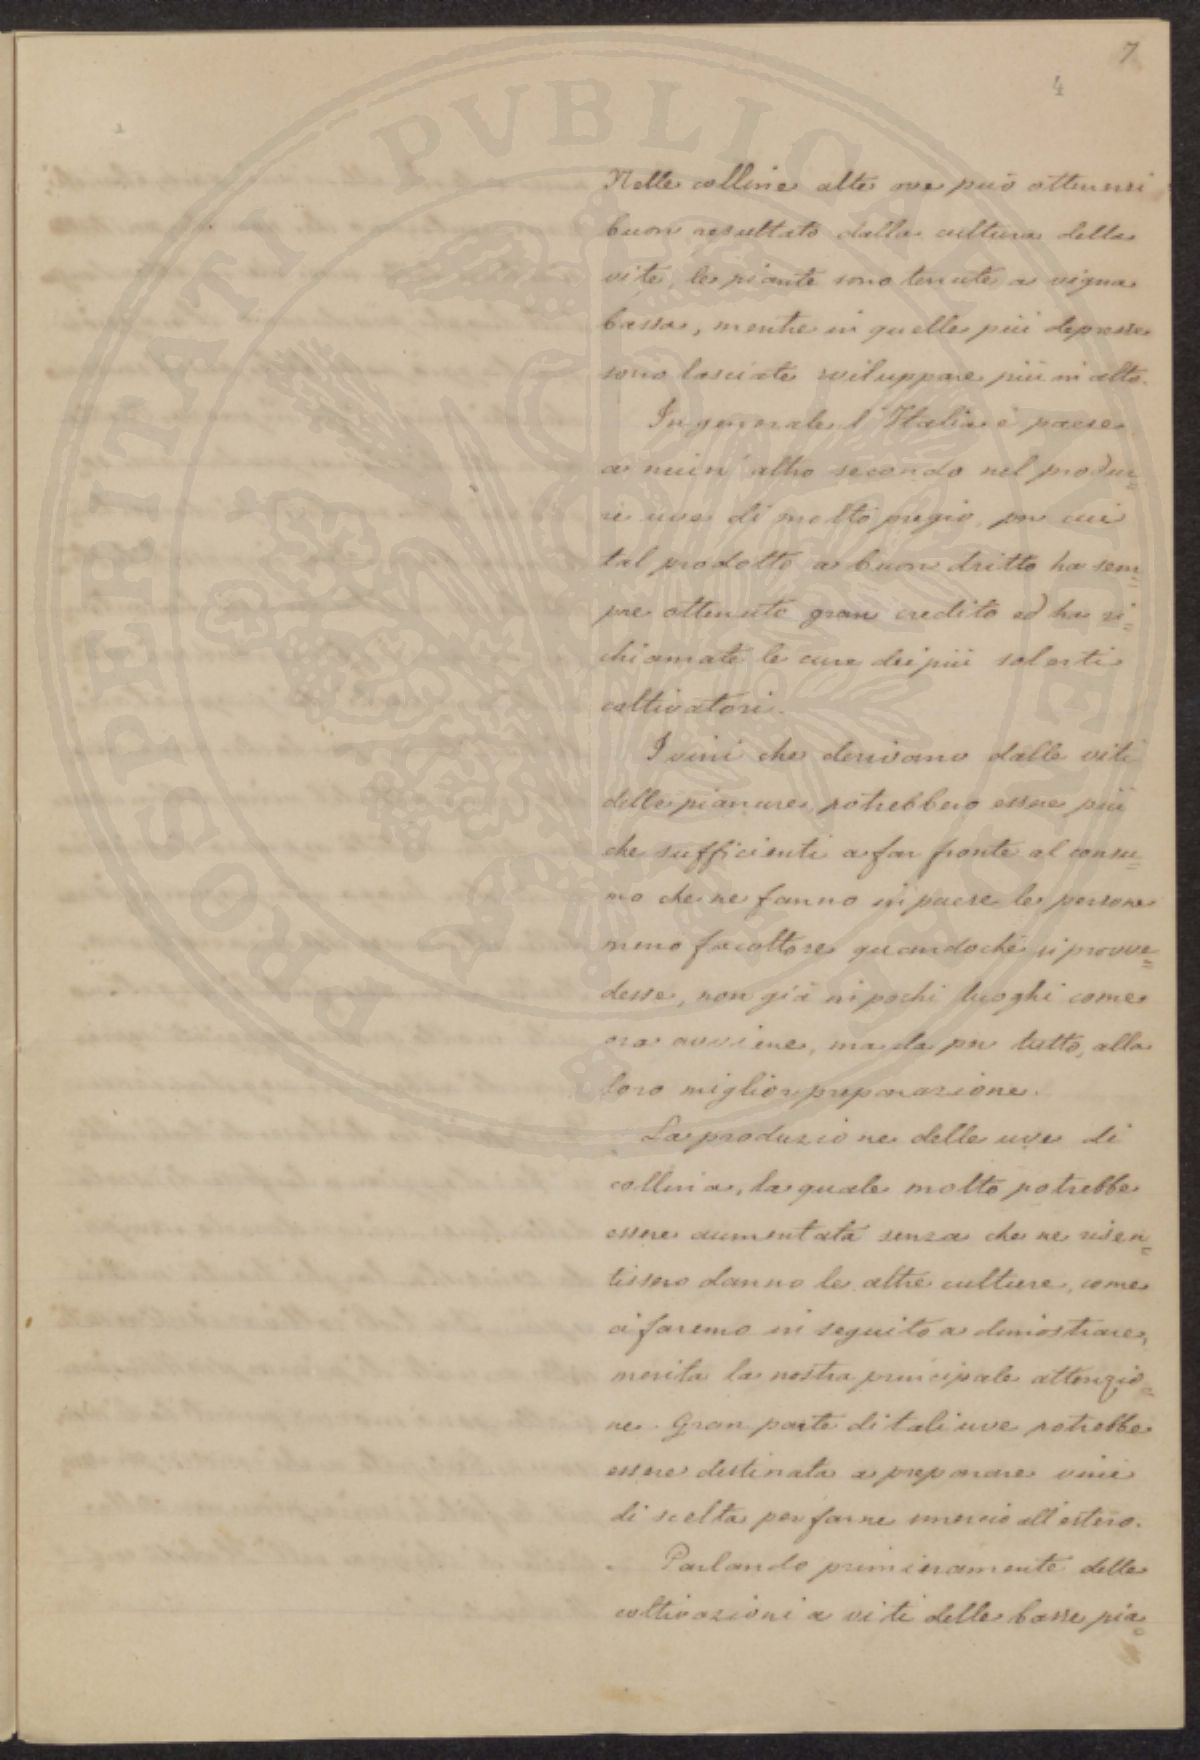 7
4
Nelle colline alte ove può ottenersi
buon resultato dalla cultura della
vite, le piante sono tenute a vigna
bassa, mentre in quelle più depresse
sono lasciate sviluppare più in alto.
In generale l'Italia è paese
a niun' altro secondo nel produr=
re uve di molto pregio, per cui
tal prodotto a buon dritto ha sem=
pre ottenuto gran credito ed ha ri=
chiamate le cure dei più solerti
coltivatori.
I vini che derivano dalle viti
delle pianure potrebbero essere più
che sufficienti a far fronte al consu=
mo che ne fanno in paese le persone
meno facoltose quandochè si provve=
desse, non già in pochi luoghi come
ora avviene, ma da per tutto, alla
loro miglior preparazione.
La produzione delle uve di
collina, la quale molto potrebbe
essere aumentata senza che ne risen=
tissero danno le altre culture, come
ci faremo in seguito a dimostrare,
merita la nostra principale attenzio=
ne. Gran parte di tali uve potrebbe
essere destinata a preparare vini
di scelta per farne commercio all'estero.
Parlando primieramente delle
coltivazioni a viti delle basse pia=
PROSPERITATI PVBLICAE AVGENDAE